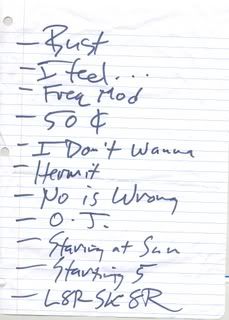 — Bust
— I feel...
— Freq Mod
— 50 ¢
— I Don't Wanna
— Hermit
— No is Wrong
— O.J.
— Staring at Sun
— Starting 5
— L8R SK8R